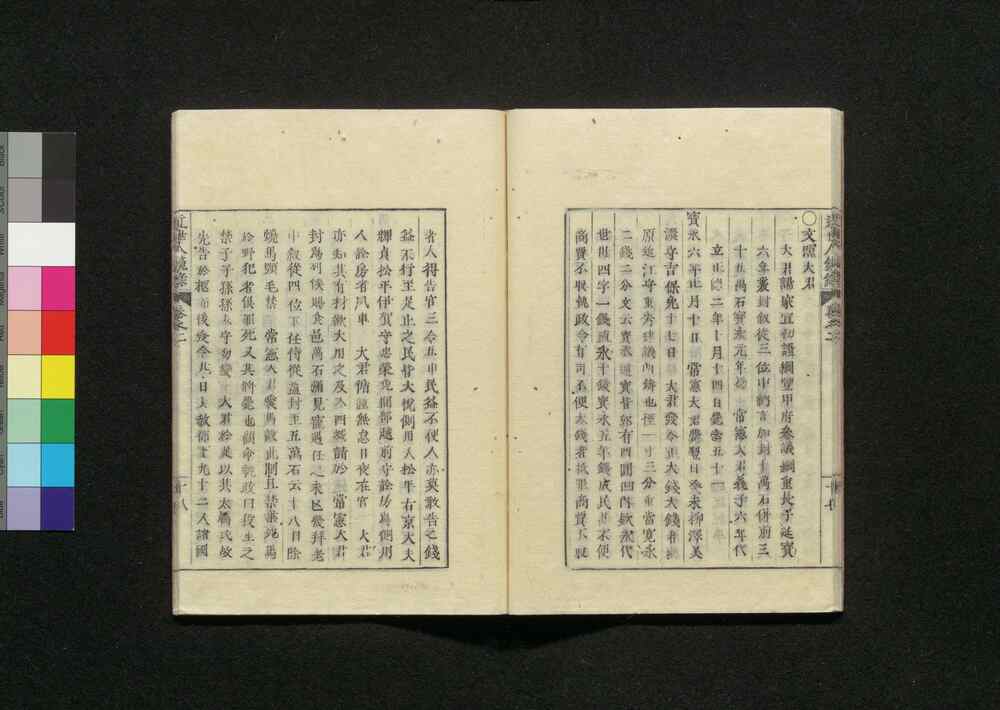 〇文昭大君
大君諱家宣初諱綱豐甲府參議綱重長子延寶
六年襲封叙從三位中納言加封十萬石併前三
十五萬石寶永元年 常憲大君義子六年代
立正德二年十月十四日薨壽五十一
寶永六年正月十日 常憲大君薨翌日 柳澤美
濃守吉保免十七日 大君發令止大錢大錢者
原近江守重秀建議所鑄也徑一寸三分重當寛永
二錢二分文云寶永通寶背郭有四圓凹內欵永代
世用四字一錢直永十錢寶永五年錢成民甚不便
商賈不取挽政令有司不便大錢者抵罪商賈不取
者人得告官三令五申民益不便人亦莫敢告之錢
益不行至是止之民皆大悅側用人松平右京大夫
輝貞松平伊賀守忠榮免間部越前守詮房為側用
人詮房省風車 大君脩謹無息日夜在官 大君
亦知其有材欲大用之及入西城請於 常憲大君
封為列侯賜食邑萬石頗見寵遇任之未已發拜老
中叙從四位下任侍從益封至五萬石云十八日除
燒馬顋毛禁 常憲大君愛馬故此制且禁棄死馬
於野犯者俱罪死又其將薨也顧命執政曰殺生之
禁子子孫孫永守勿變 大君於是以其大屬民故
先告於柩而後發令此日大赦 九十二人諸國
近世人鏡錄 卷之二
十八